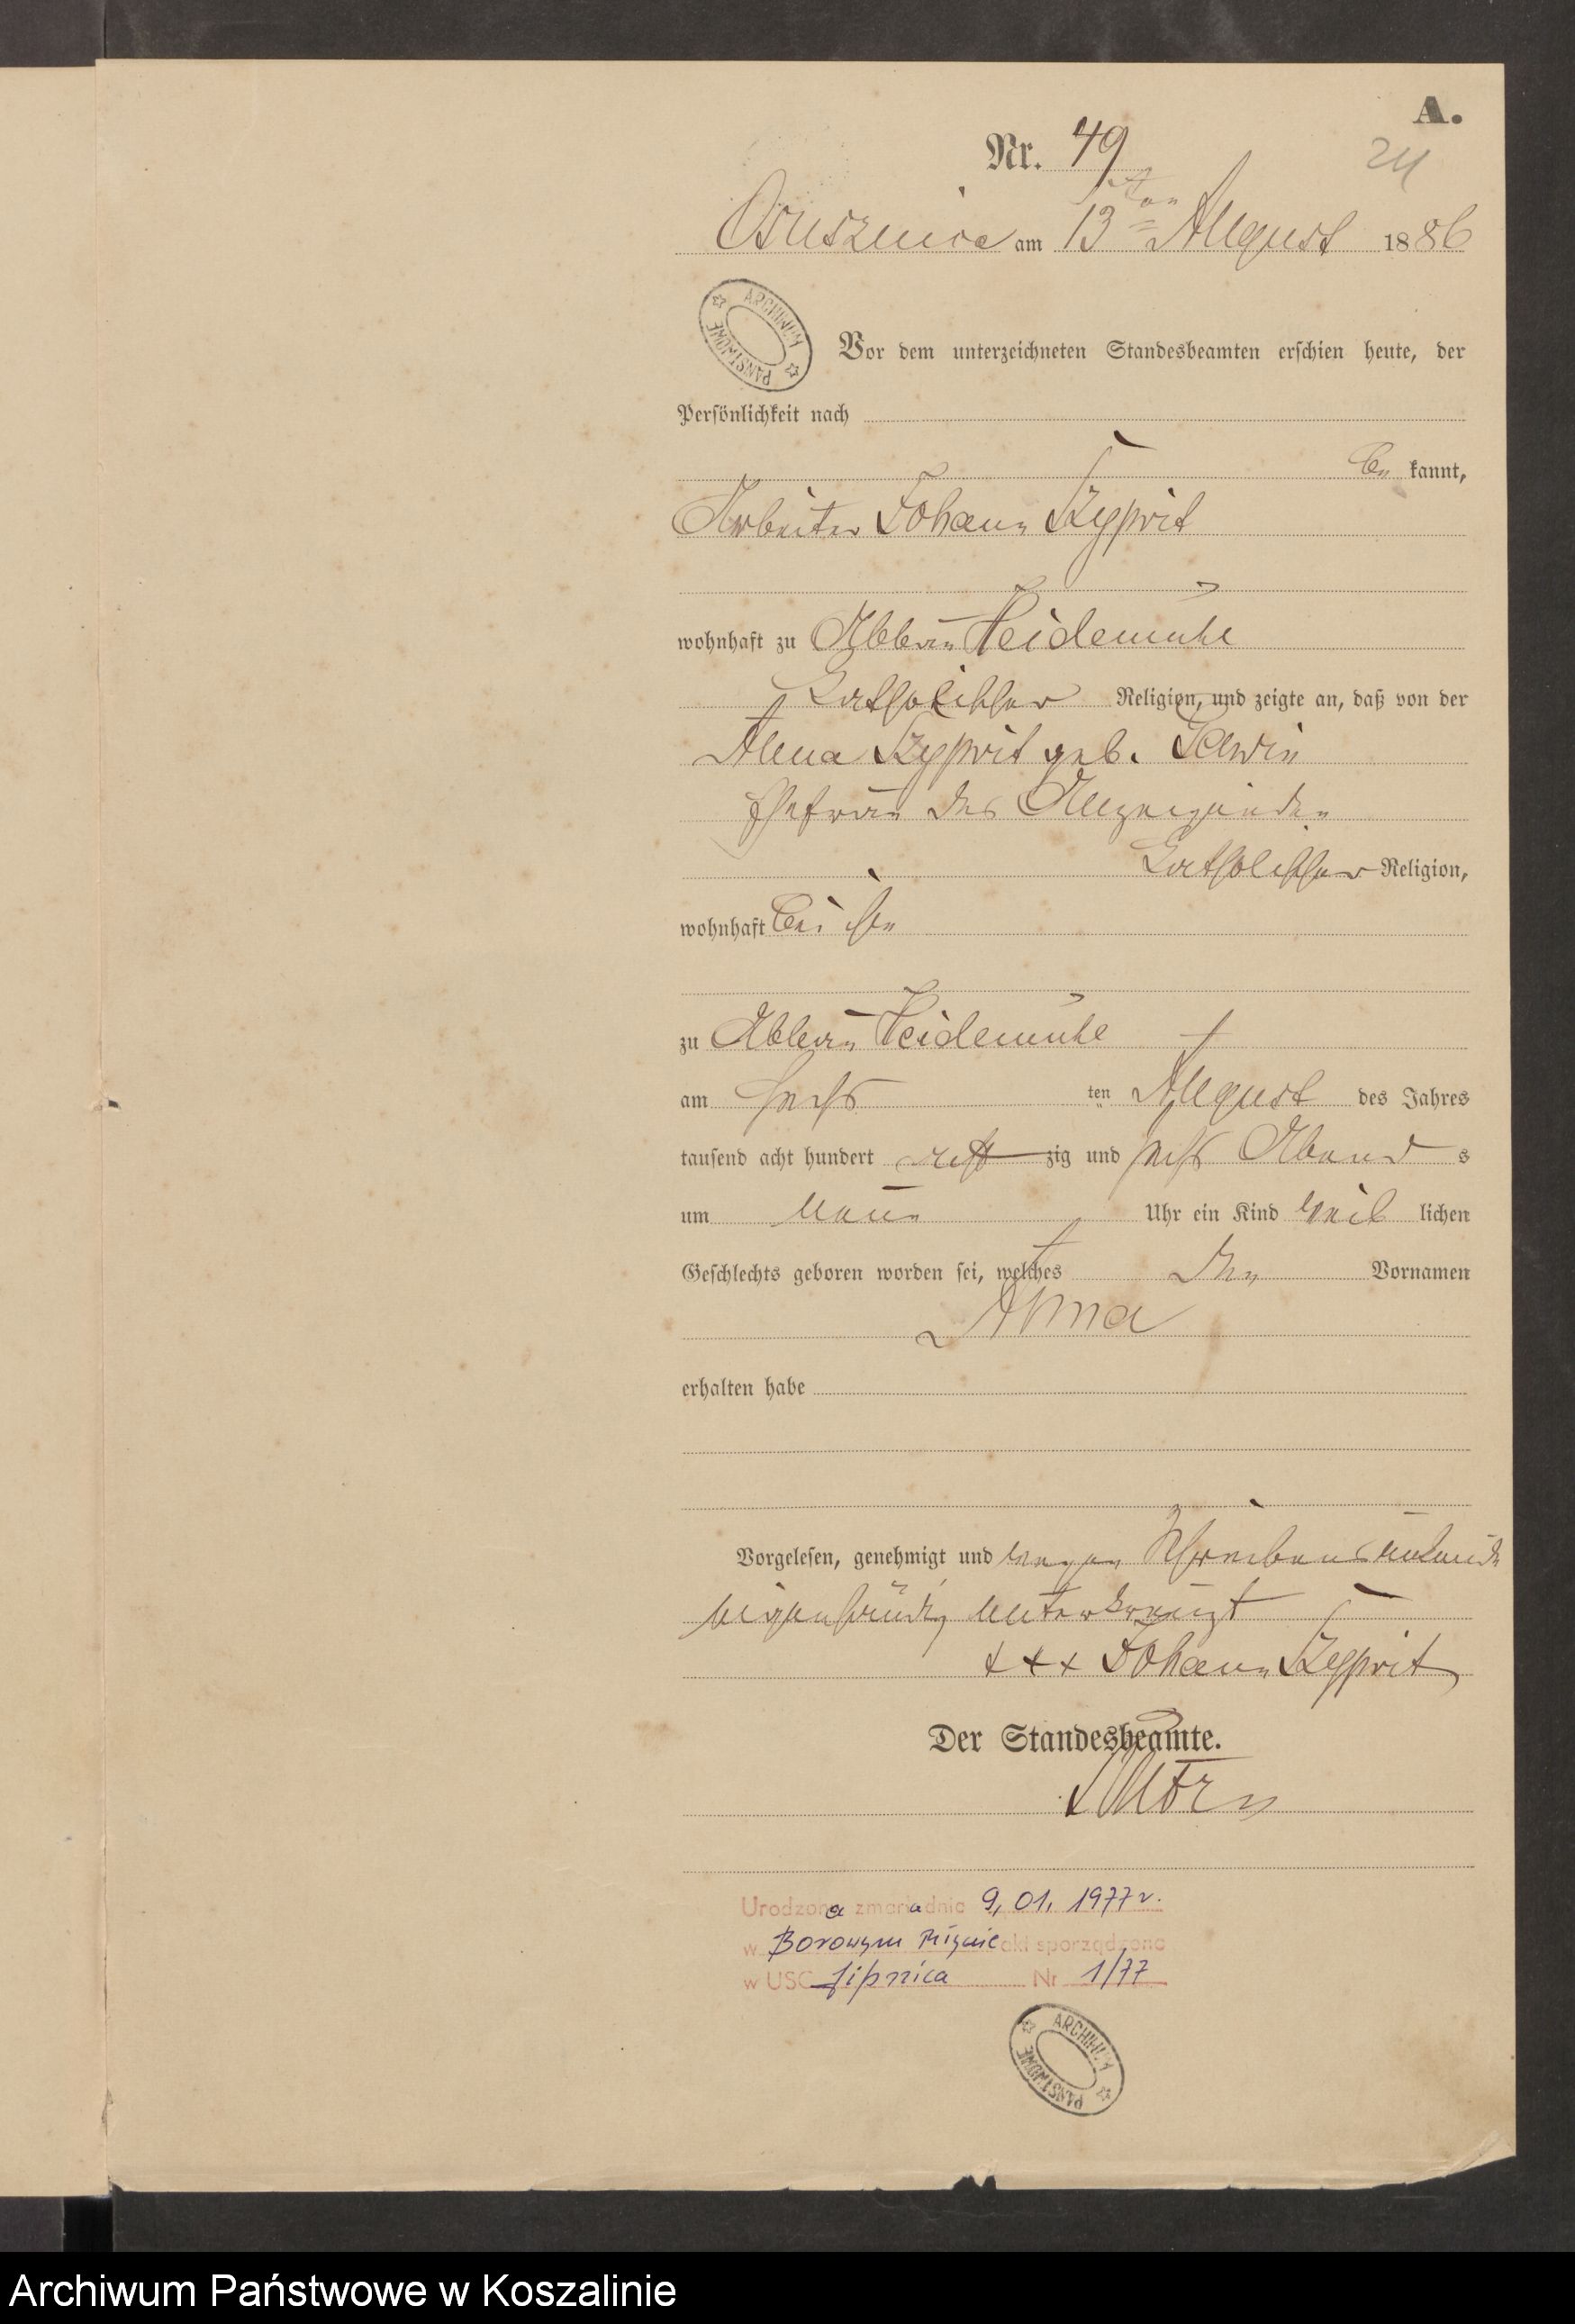 A.
Nr. 49
24
Osusznica am 13ten August 1886
ARCHIWUM PAŃSTWOWE
Vor dem unterzeichneten Standesbeamten erschien heute, der
Persönlichkeit nach
be kannt,
Arbeiter Johann Szyprit
wohnhaft zu Abbau Heidemühl
katholischer Religion, und zeigte an, daß von der
Anna Szyprit geb.
Ehefrau des Anzeigenden
katholischer Religion,
wohnhaft bei ihm
zu Abbau Heidemühl
am sechs ten August des Jahres
tausend acht hundert acht zig und sechs Abend s
um neun Uhr ein Kind weib lichen
Geschlechts geboren worden sei, welches den Vornamen
Anna
erhalten habe
Vorgelesen, genehmigt und wegen Schreibensunkunde
eigenhändig unterkreuzt
+++ Johann Szyprit
Der Standesbeamte.
Urodzona zmarła dnia 9.01.1977 r.
w Borowym Młynie akt sporządzono
w USC Lipnica Nr 1/77
ARCHIWUM PAŃSTWOWE
Archiwum Państwowe w Koszalinie